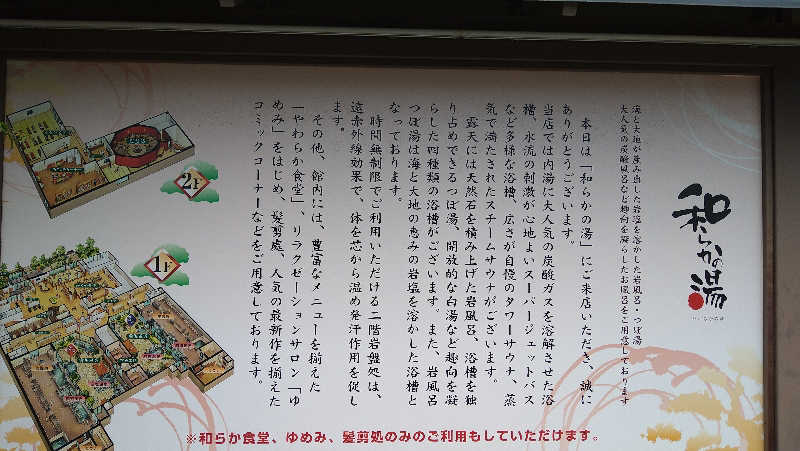 和らかの湯
海と大地が産み出した岩塩を溶かした岩風呂・つぼ湯
大人気の炭酸風呂など趣向を凝らしたお風呂をご用意しております
本日は「和らかの湯」にご来店いただき、誠に
ありがとうございます。
当店では内湯に大人気の炭酸ガスを溶解させた浴
槽、水流の刺激が心地よいスーパージェットバス
など多様な浴槽、広さが自慢のタワーサウナ、蒸
気で満たされたスチームサウナがございます。
露天には天然石を積み上げた岩風呂、浴槽を独
り占めできるつぼ湯、開放的な白湯など趣向を凝
らした四種類の浴槽がございます。また、岩風呂
つぼ湯は海と大地の恵みの岩塩を溶かした浴槽と
なっております。
時間無制限でご利用いただける二階岩盤処は、
遠赤外線効果で、体を芯から温め発汗作用を促し
ます。
その他、館内には、豊富なメニューを揃えた
「やわらか食堂」、リラクゼーションサロン「ゆ
めみ」をはじめ、髪剪處、人気の最新作を揃えた
コミックコーナーなどをご用意しております。
2F
1F
※和らか食堂、ゆめみ、髪剪処のみのご利用もしていただけます。